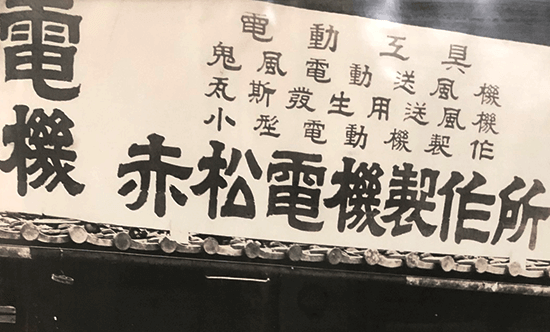 電機
電動工具
鬼風電動送風機
瓦斯發生用送風機
小型電動機製作
赤松電機製作所